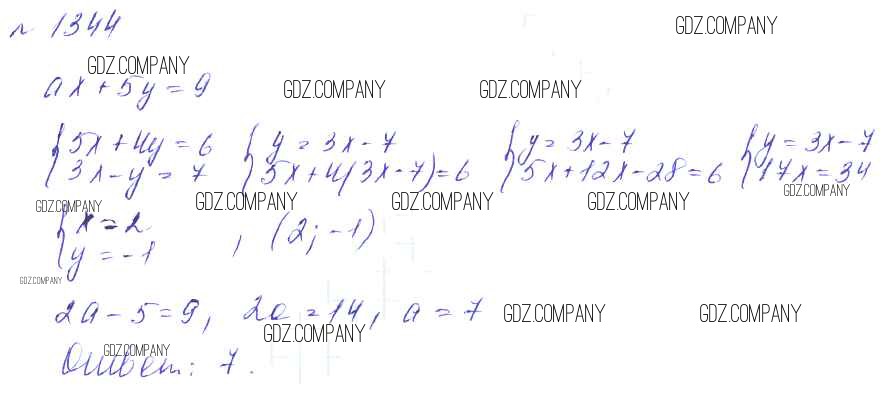 № 1344
GDZ.COMPANY
GDZ.COMPANY
ax + 5y = 9
GDZ.COMPANY
GDZ.COMPANY
{5x + 4y = 6 {y = 3x - 7 {y = 3x - 7 {y = 3x - 7
3x - y = 7 5x + 4(3x - 7) = 6 5x + 12x - 28 = 6 17x = 34
GDZ.COMPANY
GDZ.COMPANY
GDZ.COMPANY
GDZ.COMPANY
GDZ.COMPANY
{x = 2
y = -1 , (2; -1)
GDZ.COMPANY
2a - 5 = 9, 2a = 14, a = 7
GDZ.COMPANY
GDZ.COMPANY
GDZ.COMPANY
GDZ.COMPANY
Ответ: 7.